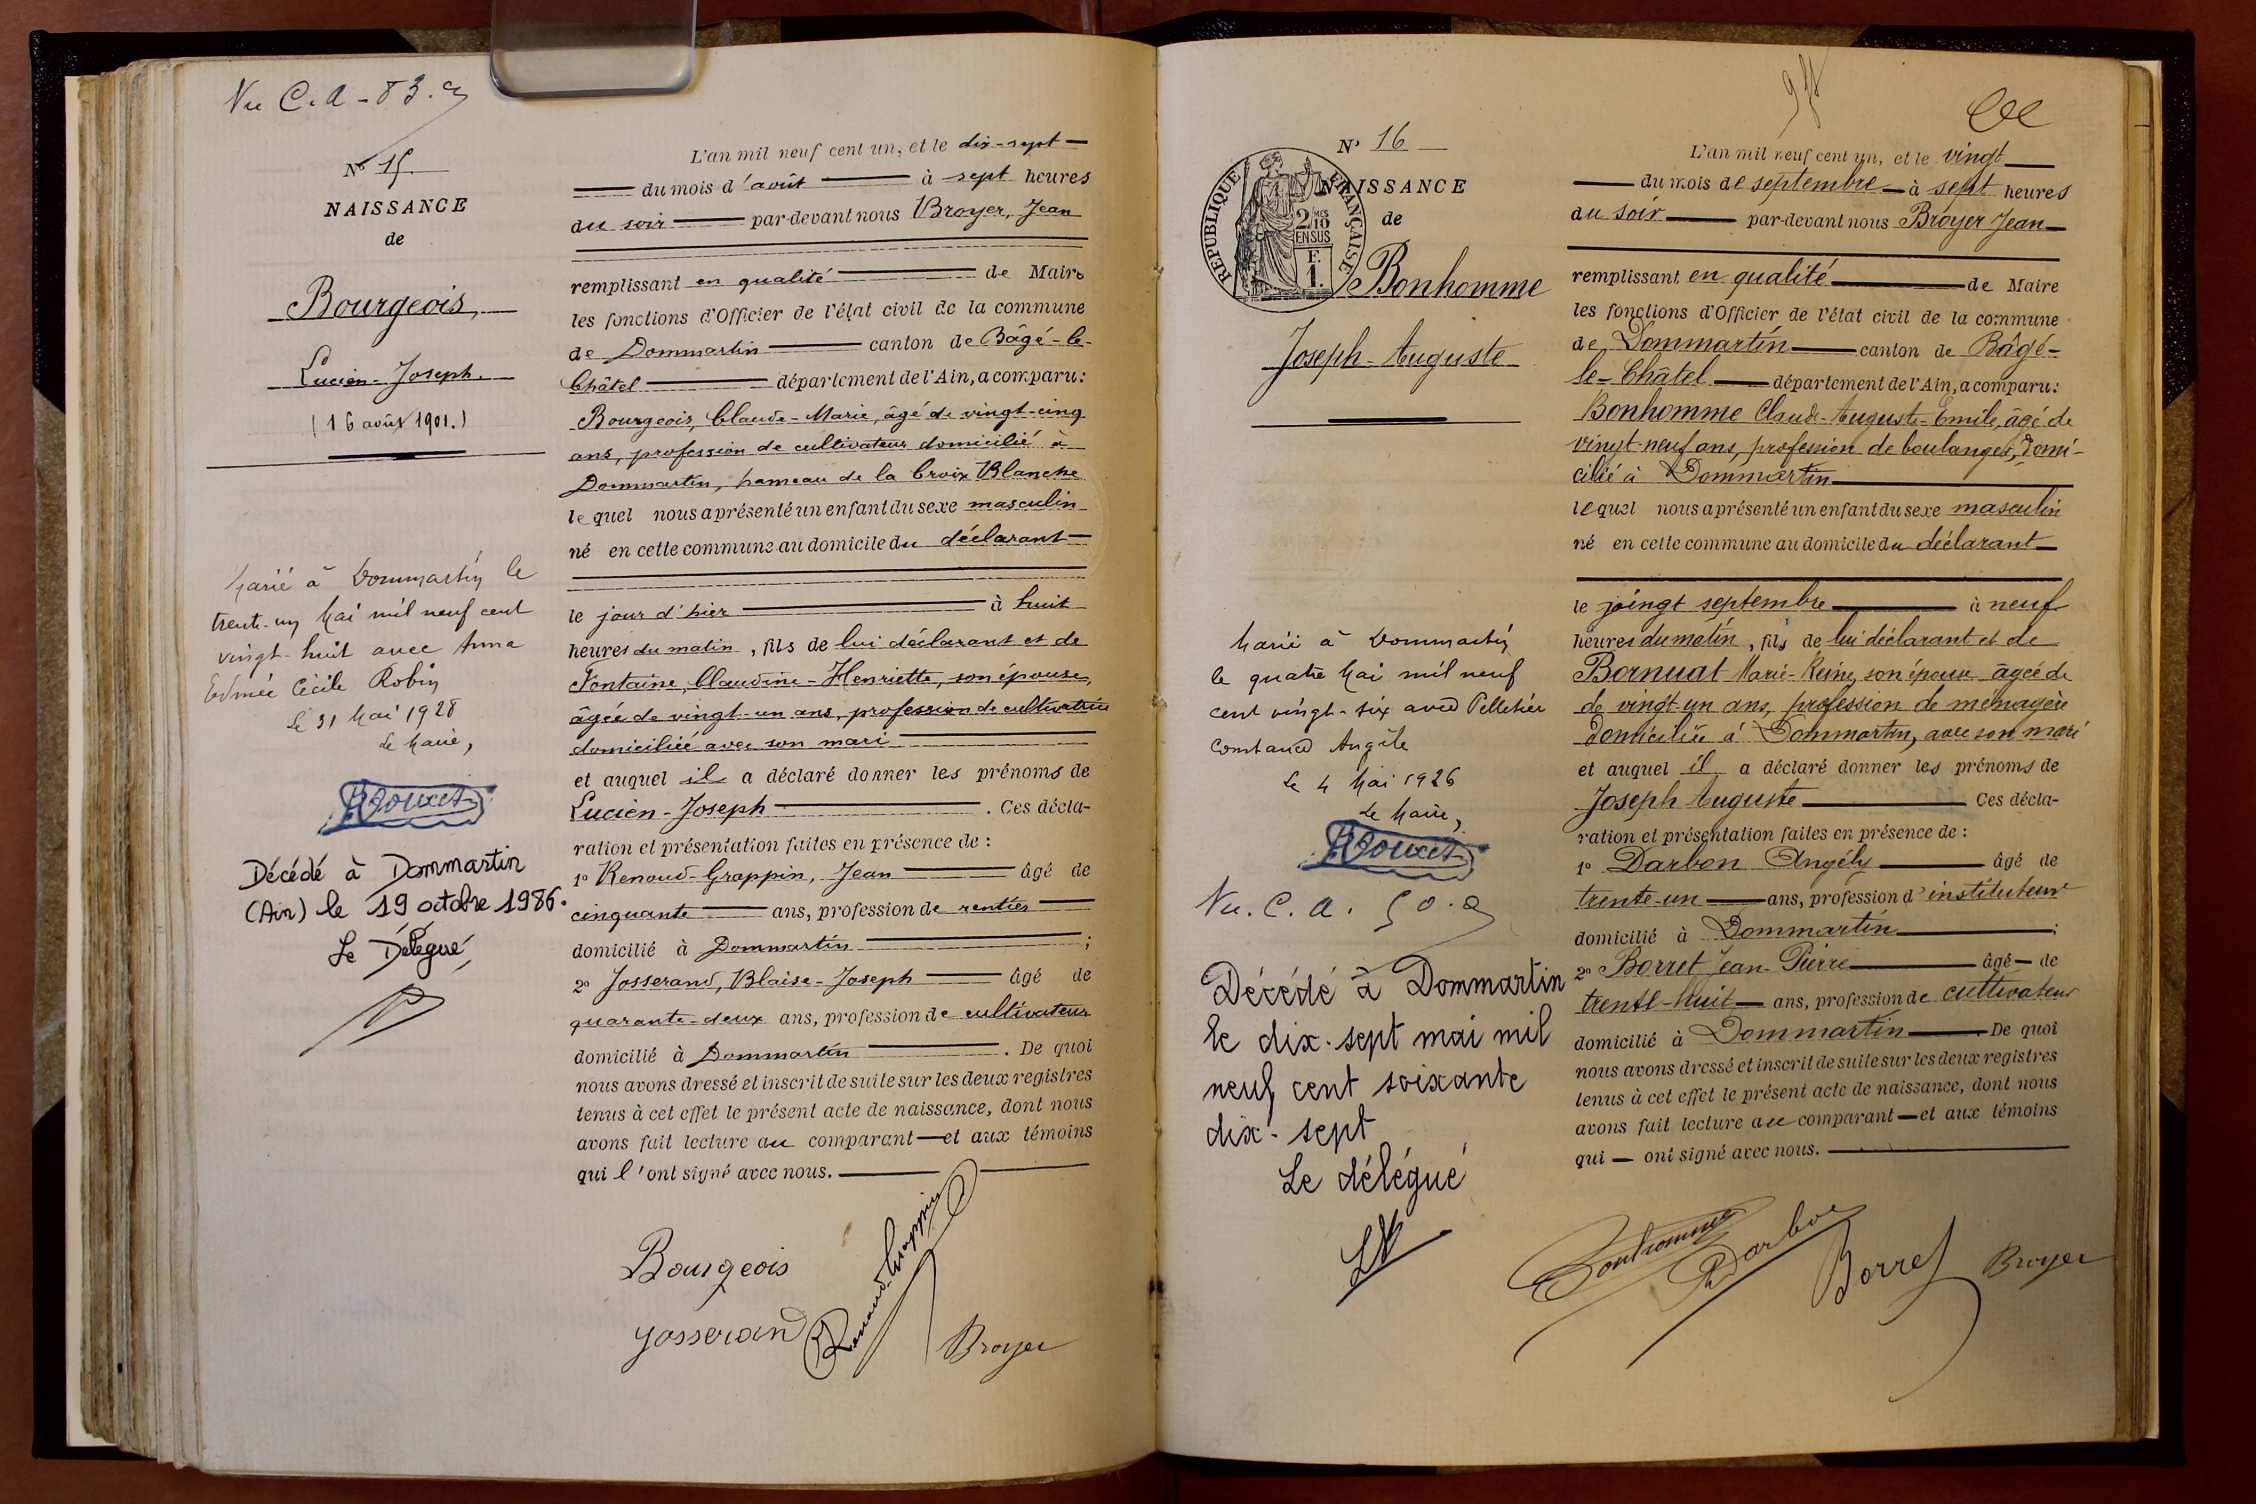 Vu C.A - 83.a
Nº 15.
NAISSANCE
de
Bourgeois,
Lucien-Joseph.
(16 août 1901.)
Marié à Dommartin le
trente-un Mai mil neuf cent
vingt-huit avec Anna
Edmée Cécile Robin
Le 31 Mai 1928
Le Maire,
Décédé à Dommartin
(Ain) le 19 octobre 1986.
Le Délégué,
L'an mil neuf cent un, et le dix-sept
du mois d'août à sept heures
du soir par-devant nous Broyer, Jean
remplissant en qualité de Maire
les fonctions d'Officier de l'état civil de la commune
de Dommartin canton de Bâgé-le-
Châtel département de l'Ain, a comparu:
Bourgeois, Claude-Marie, âgé de vingt-cinq
ans, profession de cultivateur domicilié à
Dommartin, hameau de la Croix Blanche
lequel nous a présenté un enfant du sexe masculin
né en cette commune au domicile du déclarant
le jour d'hier à huit
heures du matin, fils de lui déclarant et de
Fontaine, Claudine-Henriette, son épouse,
âgée de vingt-un ans, profession de cultivatrice
domiciliée avec son mari
et auquel il a déclaré donner les prénoms de
Lucien-Joseph. Ces décla-
ration et présentation faites en présence de :
1º Renoud-Grappin, Jean âgé de
cinquante ans, profession de rentier
domicilié à Dommartin ;
2º Josserand, Blaise-Joseph âgé de
quarante-deux ans, profession de cultivateur
domicilié à Dommartin. De quoi
nous avons dressé et inscrit de suite sur les deux registres
tenus à cet effet le présent acte de naissance, dont nous
avons fait lecture au comparant et aux témoins
qui l'ont signé avec nous.
Bourgeois
Renoud-Grappin
Josserand
Broyer
Nº 16
NAISSANCE
de
RÉPUBLIQUE FRANÇAISE
2/10 MES
EN SUS
F.
1.
Bonhomme
Joseph-Auguste
Marié à Dommartin
le quatre Mai mil neuf
cent vingt-six avec Pelletier
Constance Angèle
Le 4 Mai 1926
Le Maire,
Vu. C. A. 50.a
Décédé à Dommartin
le dix-sept mai mil
neuf cent soixante
dix-sept
Le délégué
L'an mil neuf cent un, et le vingt
du mois de septembre à sept heures
du soir par-devant nous Broyer Jean
remplissant en qualité de Maire
les fonctions d'Officier de l'état civil de la commune
de Dommartin canton de Bâgé-
le-Châtel département de l'Ain, a comparu:
Bonhomme Claude-Auguste-Emile, âgé de
vingt-neuf ans, profession de boulanger, domi-
cilié à Dommartin
lequel nous a présenté un enfant du sexe masculin
né en cette commune au domicile du déclarant
le vingt septembre à neuf
heures du matin, fils de lui déclarant et de
Bornuat Marie-Reine, son épouse âgée de
de vingt-un ans, profession de ménagère
domiciliée à Dommartin, avec son mari
et auquel il a déclaré donner les prénoms de
Joseph Auguste Ces décla-
ration et présentation faites en présence de :
1º Darbon Angély âgé de
trente-un ans, profession d'instituteur
domicilié à Dommartin ;
2º Borret Jean-Pierre âgé de
trente-huit ans, profession de cultivateur
domicilié à Dommartin De quoi
nous avons dressé et inscrit de suite sur les deux registres
tenus à cet effet le présent acte de naissance, dont nous
avons fait lecture au comparant et aux témoins
qui ont signé avec nous.
Bonhomme
Darbon
Borret
Broyer